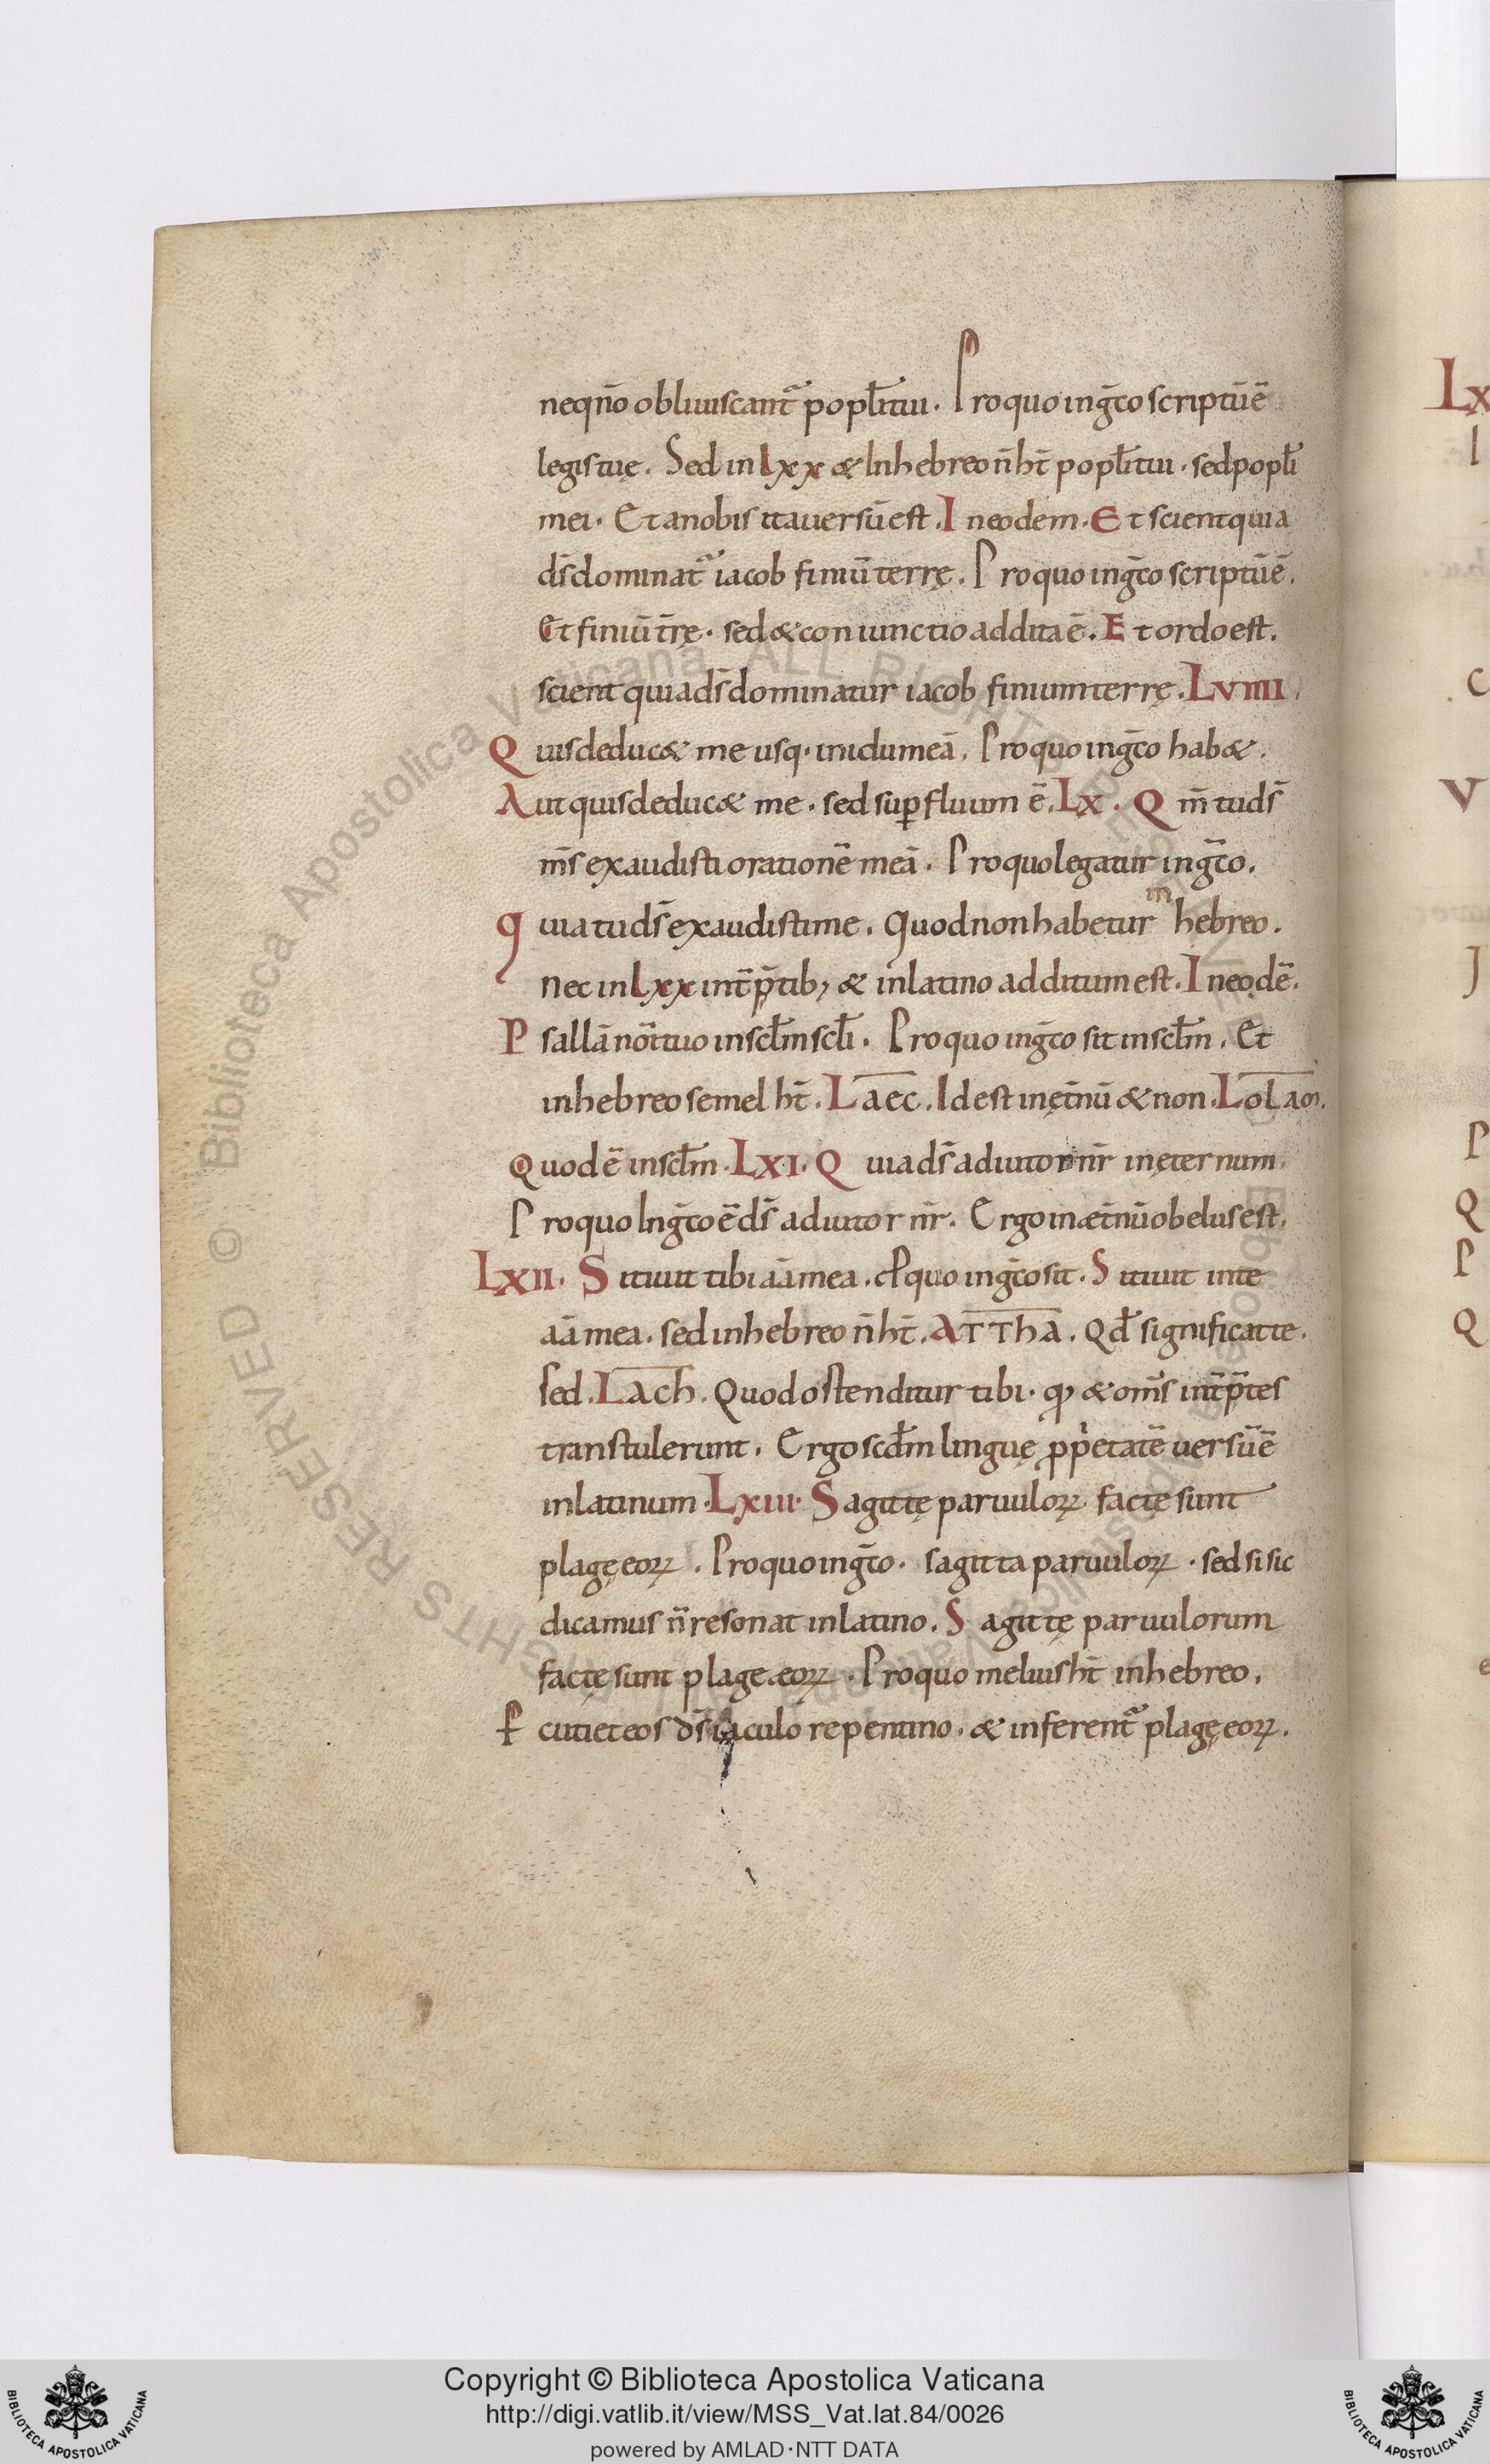 neqño obliuiscant᷑ popłi tui. Pro quo in gc̄o scriptū ē
legis tuę. Sed in lxx & In hebreo n̄ ht̄ popłi tui. sed popłi
mei. Et a nobis ita uersū est. In eodem. Et scient quia
ds̄ dominat᷑ iacob finiū terrę. Pro quo in gc̄o scriptū ē.
Et finiū tr̄ę. sed & coniunctio addita ē. Et ordo est.
scient quia ds̄ dominatur iacob finium terrę. LVIIII.
Quis deduc& me usq. in idumeā. Pro quo in gc̄o hab&.
Aut quis deduc& me. sed suꝑfluum ē. Lx. Qm̄ tu ds̄
ms̄ exaudisti orationē meā. Pro quo legatur in gc̄o.
quia tu ds̄ exaudisti me. Quod non habetur in hebreo.
nec in Lxx int̄p̄tib; & in latino additum est. In eodē.
Psallā nōi tuo in scłm scłi. Pro quo in gc̄o sit in scłm. Et
in hebreo semel ht̄. Laec. Id est in ęt̄nū & non. Lolam.
Quod ē in scłm. LXI. Quia ds̄ adiutor nr̄ in ęternum.
Pro quo In gc̄o ē ds̄ adiutor nr̄. Ergo in æt̄nū obelus est.
LXII. Sitiuit tibi aā mea. Pquo in gc̄o sit. Sitiuit in te
aā mea. sed in hebreo n̄ ht̄. ATTha. Qđ significat te.
sed. Lach. Quod ostenditur tibi. qđ & oms̄ int̄p̄tes
transtulerunt. Ergo scđm linguę ꝓp̄etatē uersū ē
in latinum. LXIII. Sagittę paruuloꝝ factę sunt
plagę eoꝝ. Pro quo in gc̄o. sagitta paruuloꝝ. sed si sic
dicamus n̄ resonat in latino. Sagittę paruulorum
factę sunt plage æoꝝ. Pro quo melius ht̄ in hebreo.
Pcutiet eos ds̄ iaculo repentino. & inferent᷑ plagę eoꝝ.
Lx
Biblioteca Apostolica Vaticana ALL RIGHTS RESERVED ©
Copyright © Biblioteca Apostolica Vaticana
http://digi.vatlib.it/view/MSS_Vat.lat.84/0026
powered by AMLAD·NTT DATA
BIBLIOTECA APOSTOLICA VATICANA
BIBLIOTECA APOSTOLICA VATICANA